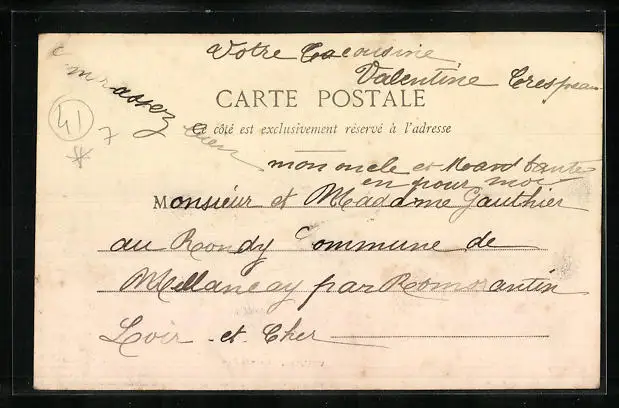 Votre
Valentine
CARTE POSTALE
Ce côté est exclusivement réservé à l'adresse
embrassez
bien
41
7
mon oncle et tante
en pour moi
Monsieur et Madame Gauthier
au Rondy Commune de
Millancay par Romorantin
Loir et Cher